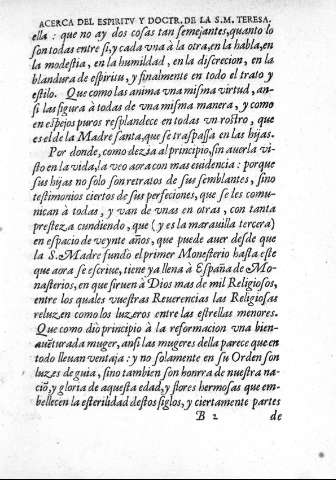 ACERCA DEL ESPIRITV Y DOCTR. DE LA S.M. TERESA.
ella: que no ay dos cosas tan semejantes, quanto lo
son todas entre si, y cada vna à la otra, en la habla, en
la modestia, en la humildad, en la discrecion, en la
blandura de espiritu, y finalmente en todo el trato y
estilo. Que como las anima vna misma virtud, an-
si las figura à todas de vna misma manera, y como
en espejos puros resplandece en todas vn rostro, que
es el de la Madre santa, que se traspassa en las hijas.
Por donde, como dezia al principio, sin auerla vi-
sto en la vida, la veo aora con mas euidencia: porque
sus hijas no solo son retratos de sus semblantes, sino
testimonios ciertos de sus perfeciones, que se les comu-
nican à todas, y van de vnas en otras, con tanta
presteza cundiendo, que (y es la marauilla tercera)
en espacio de veynte años, que puede auer desde que
la S. Madre fundo el primer Monesterio hasta este
que aora se escriue, tiene ya llena à España de Mo-
nasterios, en que siruen à Dios mas de mil Religiosos,
entre los quales vuestras Reuerencias las Religiosas
reluzen como los luzeros entre las estrellas menores.
Que como dio principio à la reformacion vna bien-
auēturada muger, ansi las mugeres della parece que en
todo lleuan ventaja: y no solamente en su Orden son
luzes de guia, sino tambien son honrra de nuestra na-
ciō, y gloria de aquesta edad, y flores hermosas que em-
bellecen la esterilidad destos siglos, y ciertamente partes
B 2 de